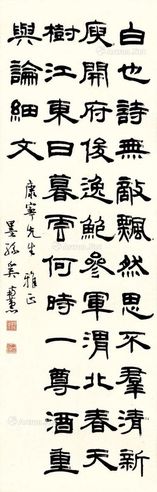 白也詩無敵飄然思不羣清新
庾開府俊逸鮑參軍渭北春天
樹江東日暮雲何時一尊酒重
與論細文
康寧先生 雅正
吳南薰